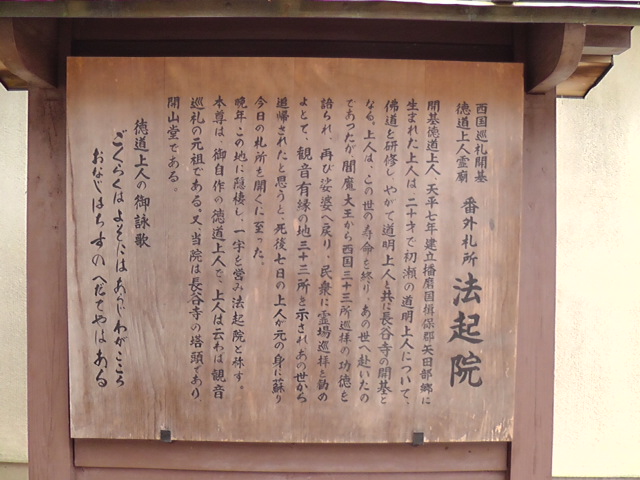 西国巡礼開基
徳道上人霊廟
番外札所 法起院
開基徳道上人、天平七年建立播磨国揖保郡矢田部郷に
生まれた上人は二十才で初瀬の道明上人について、
佛道を研修し、やがて道明上人と共に長谷寺の開基と
なる。上人は、この世の寿命を終り、あの世へ赴いたの
であつたが閻魔大王から西国三十三所巡拝の功徳を
諮られ、再び娑婆へ戻り、民衆に霊場巡拝を勧め
よとて、観音有縁の地三十三所を示されあの世から
追帰されたと思うと、死後七日の上人が元の身に蘇り
今日の札所を開くに至った。
晩年この地に隠棲し、一宇を営み法起院と称す。
本尊は、御自作の徳道上人で、上人は云わば観音
巡礼の元祖である。又、当院は長谷寺の塔頭であり
開山堂である。
徳道上人の御詠歌
ごくらくはよそにはあらじわがこころ
おなじはちすのへだてやはある